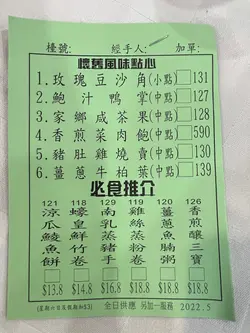 檯號: 經手人: 加單:
懷舊風味點心
1. 玫瑰豆沙角(小點) 131
2. 鮑汁鴨掌(中點) 127
3. 家鄉咸茶果(中點) 128
4. 香煎菜肉飽(中點) 590
5. 豬肚雞燒賣(中點) 130
6. 薑蔥牛柏葉(中點) 139
必食推介
121 118 129 119 120 126
涼瓜鯪魚餅
蠔皇鮮竹卷
南乳蒸豬手
雞絲蒸粉卷
薑蔥蒸腩
香煎釀三寶
$13.8 $14.8 $16.8 $14.8 $18.8 $18.8
全日供應 另加一服務 2022.5